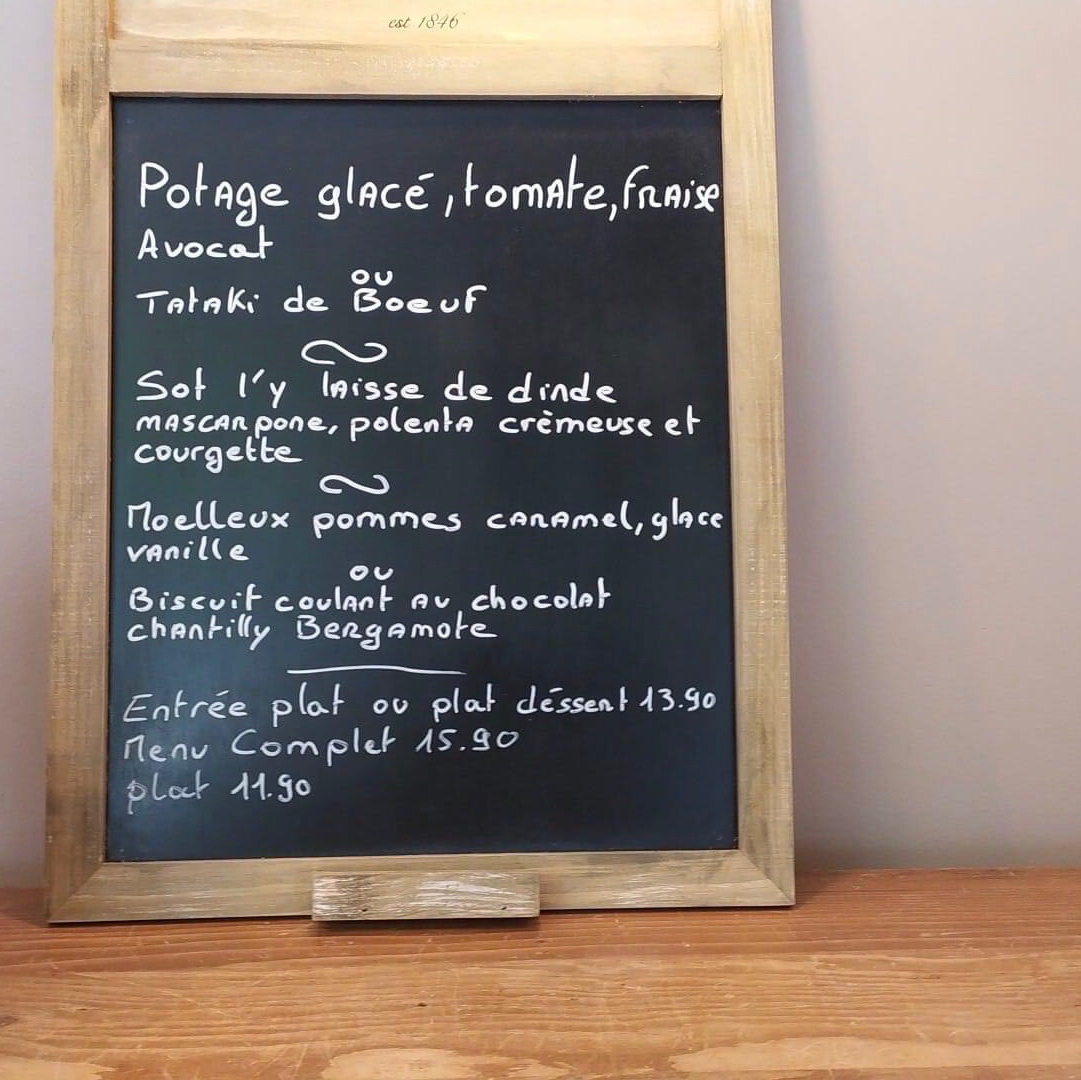 est 1846
Potage glacé, tomate, fraise
Avocat
ou
Tataki de Boeuf
Sot l'y laisse de dinde
mascarpone, polenta crèmeuse et
courgette
Moelleux pommes caramel, glace
vanille
ou
Biscuit coulant au chocolat
chantilly Bergamote
Entrée plat ou plat déssert 13.90
Menu Complet 15.90
plat 11.90